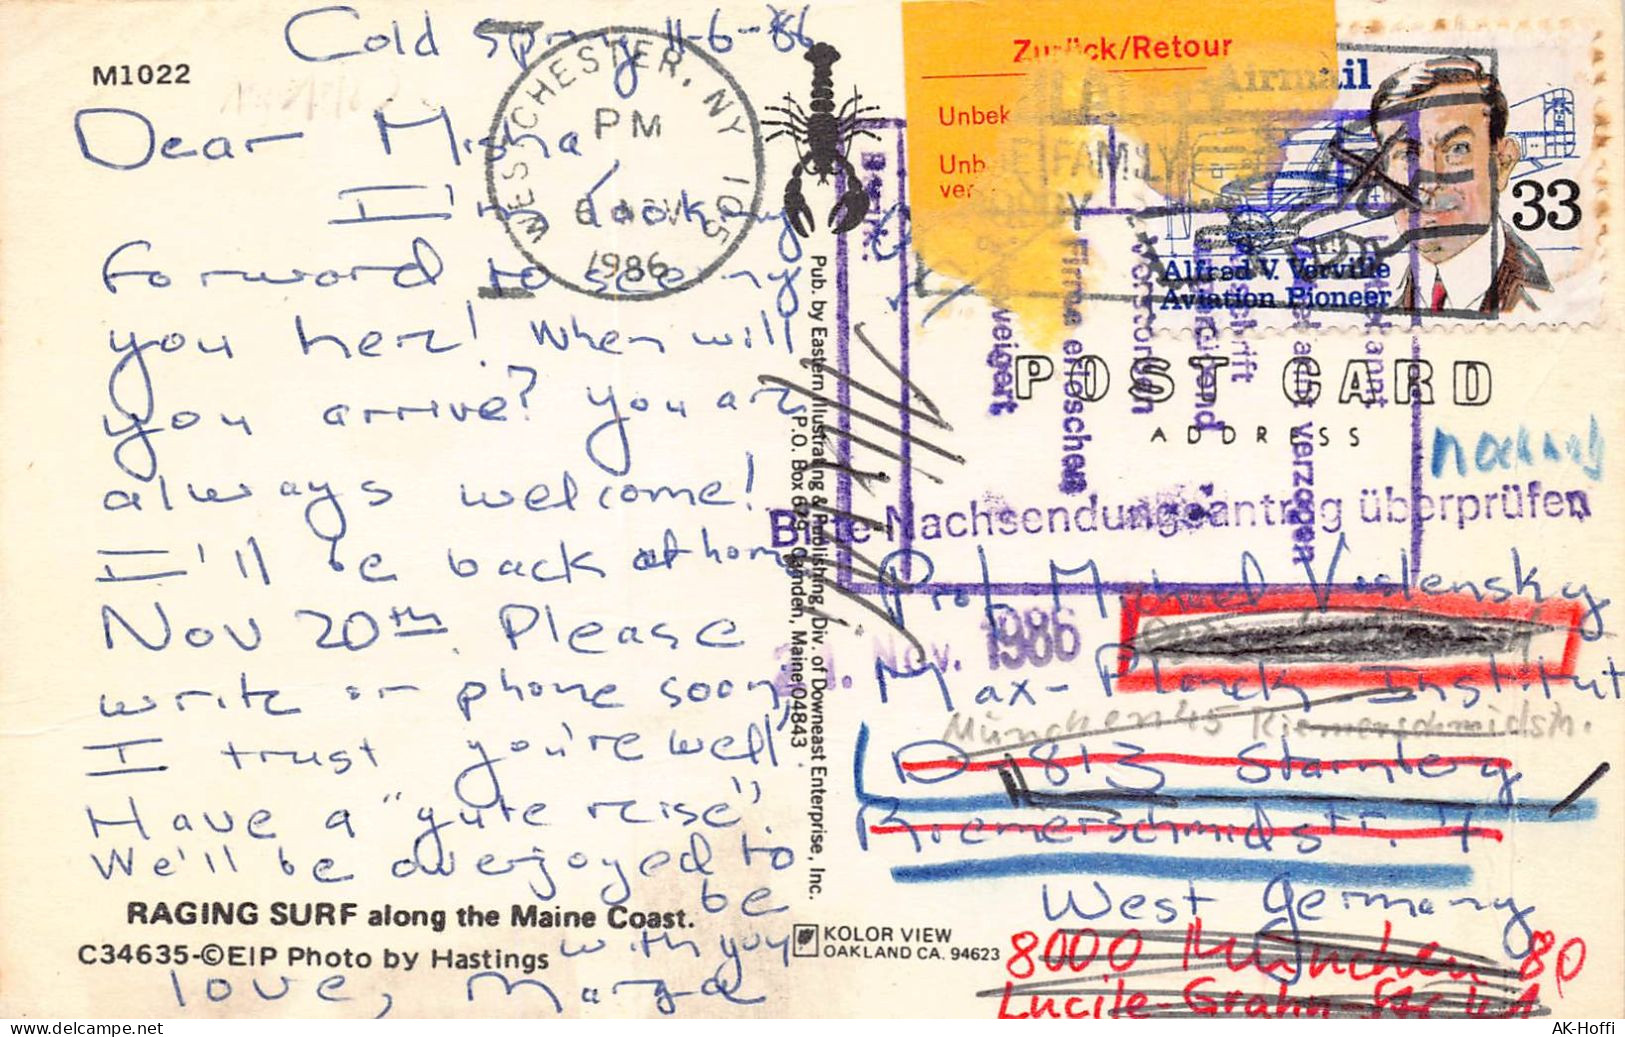 Cold Spring 11-6-86
M1022
Dear Misha,
I'm looking
forward to seeing
you here! When will
you arrive? You are
always welcome!
I'll be back at home
Nov 20th. Please
write or phone soon,
I trust you're well
Have a "gute reise".
We'll be overjoyed to
be
with you
love, Marga
RAGING SURF along the Maine Coast.
C34635-©EIP Photo by Hastings
WESTCHESTER, NY 105
PM
6 NOV
1986
Pub. by Eastern Illustrating & Publishing, Div. of Downeast Enterprise, Inc.
P.O. Box 679, Camden, Maine 04843
KOLOR VIEW
OAKLAND CA. 94623
Zurück/Retour
Unbek
Unb
ver
Airmail
33
Alfred V. Verville
Aviation Pioneer
FAMILY
POST CARD
ADDRESS
weigert
Firma erloschen
verzogen
Bitte Nachsendungsantrag überprüfen
21. Nov. 1986
Prof. Michael Voslensky
Max-Planck Institut
München 45 Riemerschmidstr.
D-813 Starnberg
Riemerschmidstr. 7
West Germany
8000 München 80
Lucile-Grahn-Str 41
AK-Hoffi